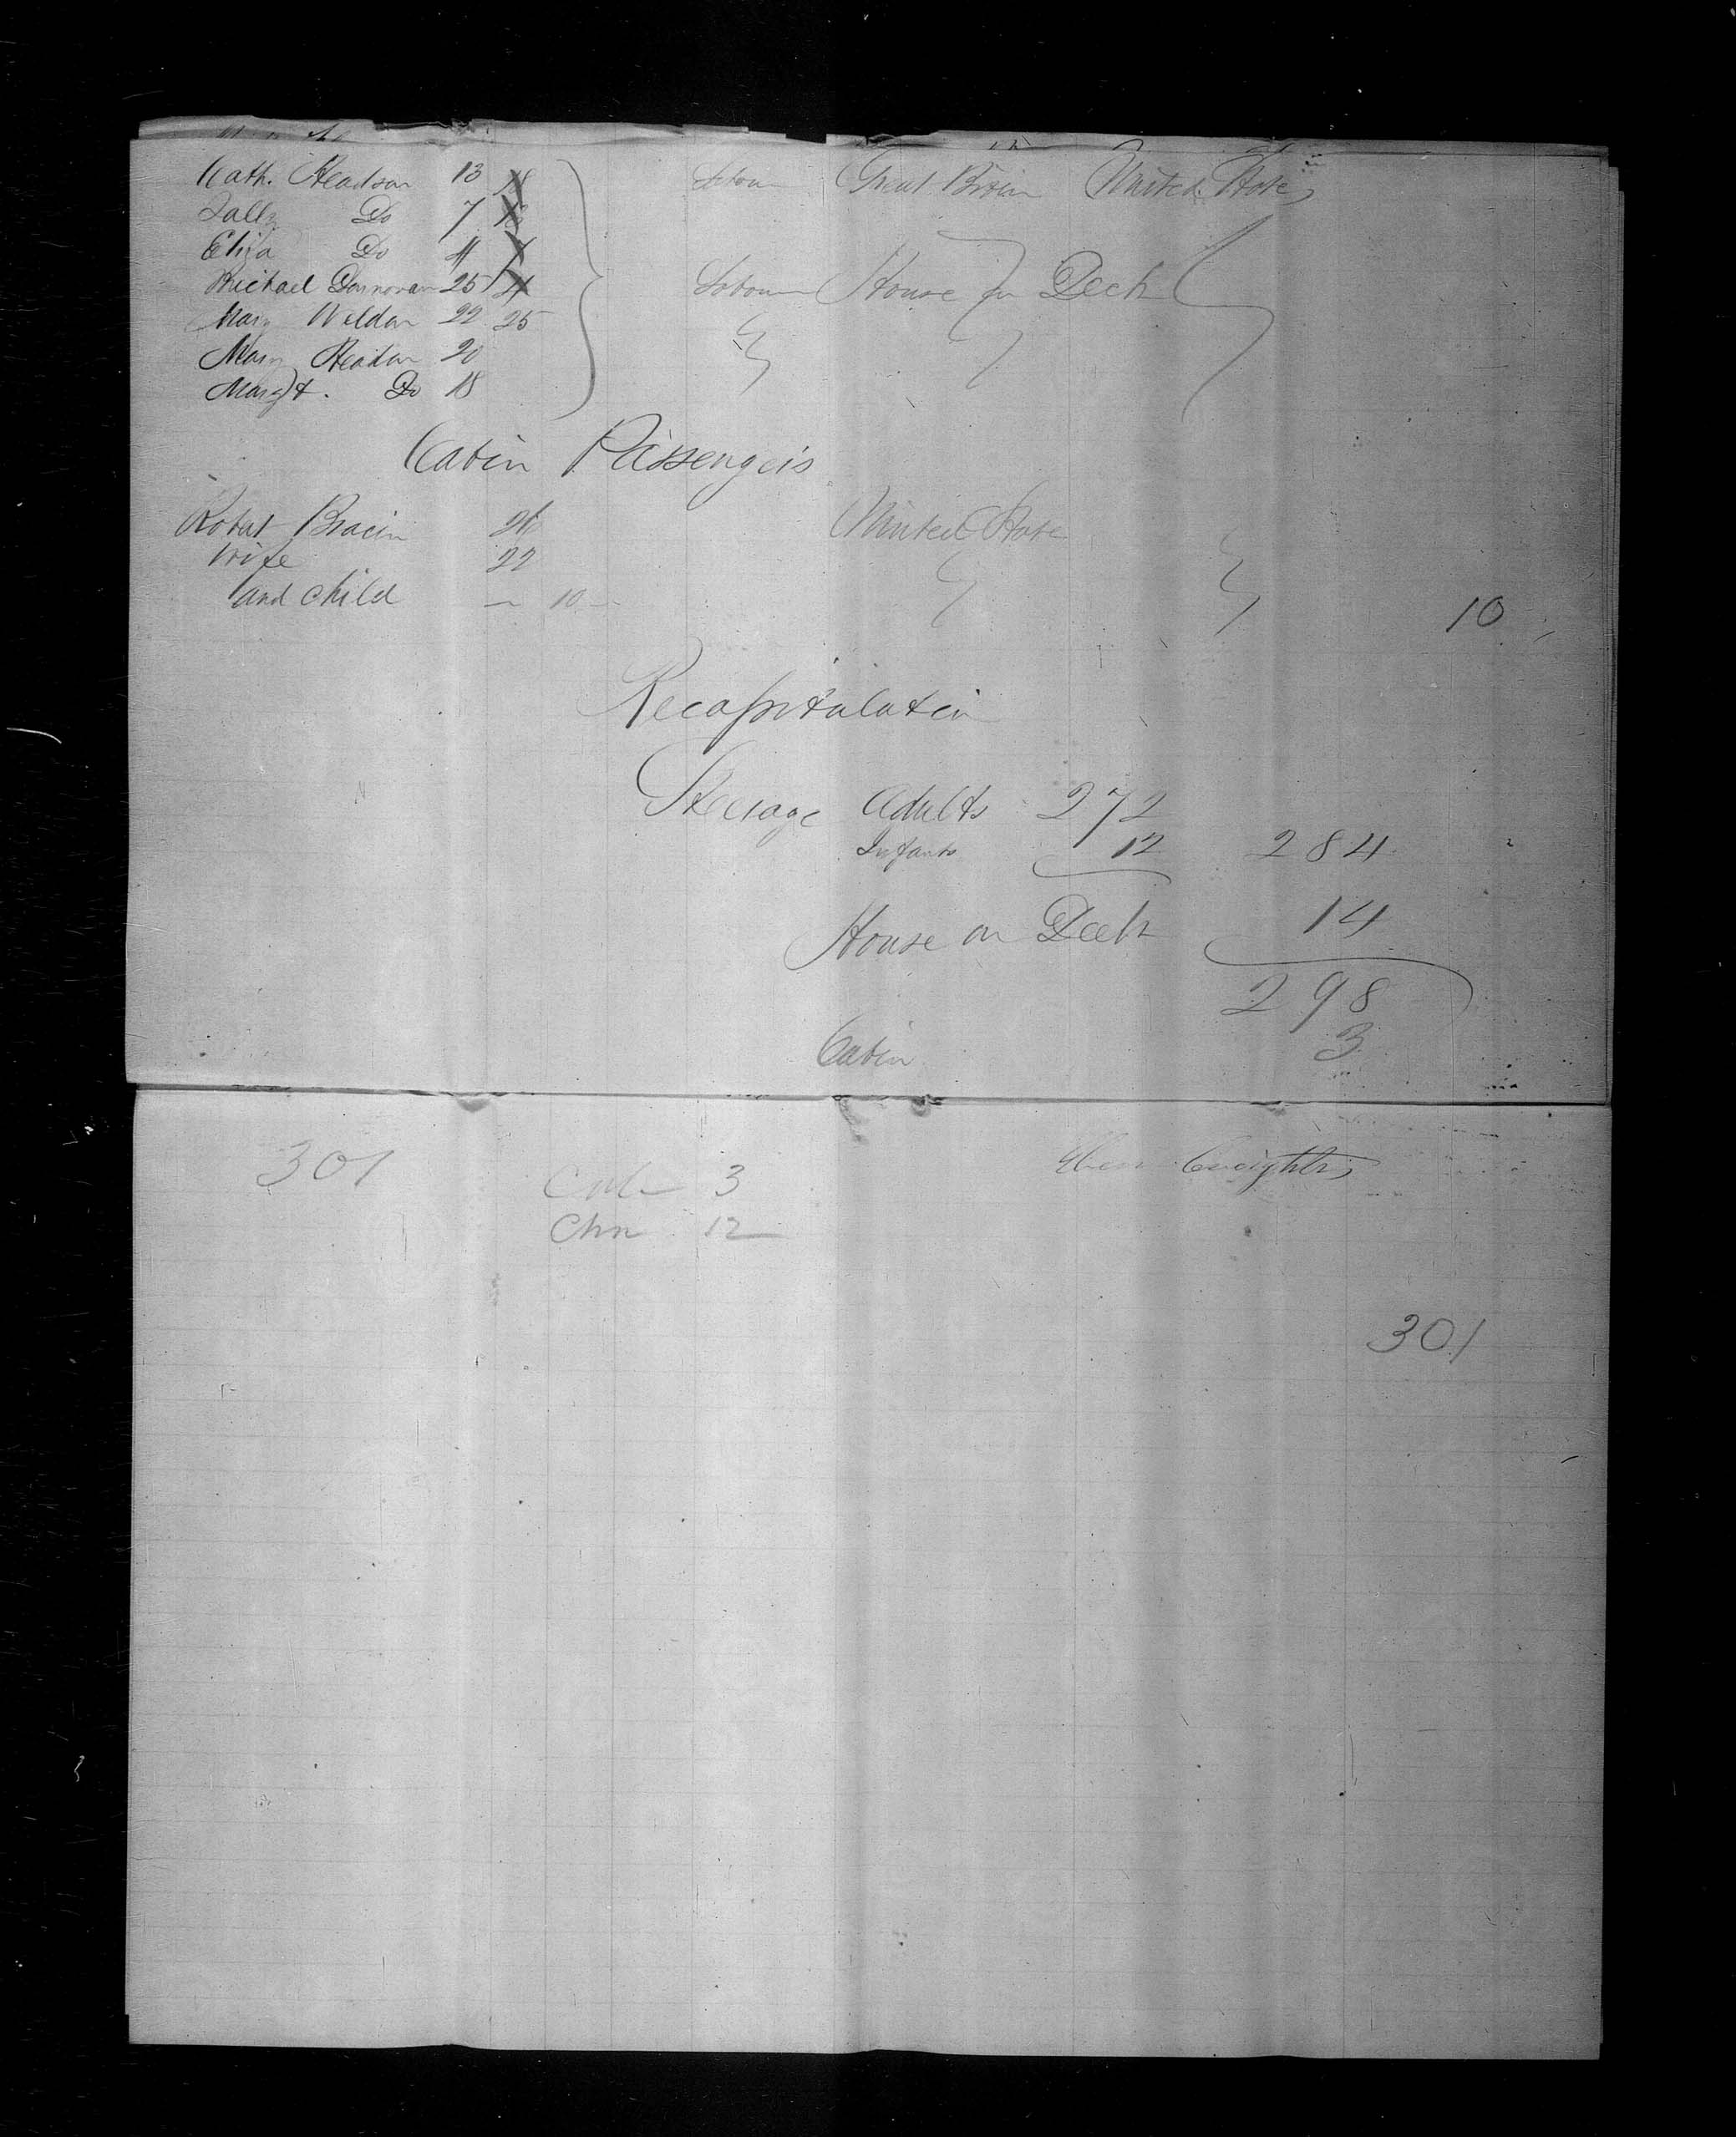 Cath. Headson 13 18 Labour Great Britain United States
Sally Do 7 13
Eliza Do 4 7
Michael Donnovan 25 4 Labour House on Deck
Mary Weldon 22 25
Mary Headon 20
Margt. Do 18
Cabin Passengers
Robert Bracin 26 United State
Wife 22
and child — 10 — 10
Recapitulation
Steerage Adults 272
Infants 12 284
House on Deck 14
298
Cabin 3
301 Creighton
Cab 3
Chn 12
301